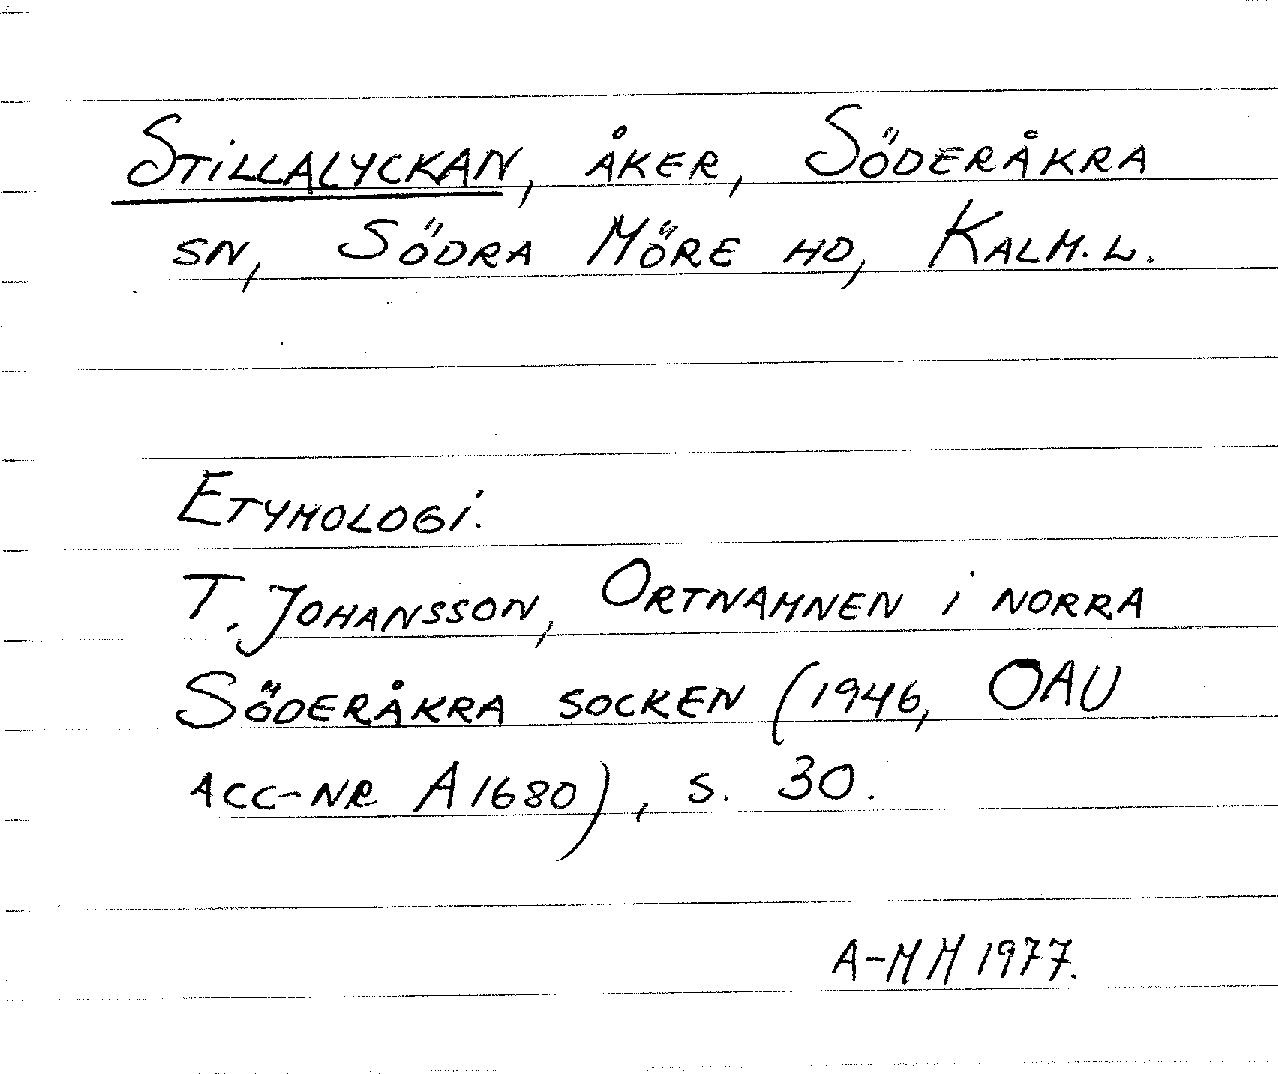 STILLALYCKAN, ÅKER, SÖDERÅKRA
SN, SÖDRA MÖRE HD, KALM. L.
ETYMOLOGI.
T. JOHANSSON, ORTNAMNEN I NORRA
SÖDERÅKRA SOCKEN (1946, OAU
ACC-NR A1680), S. 30.
A-MM 1977.